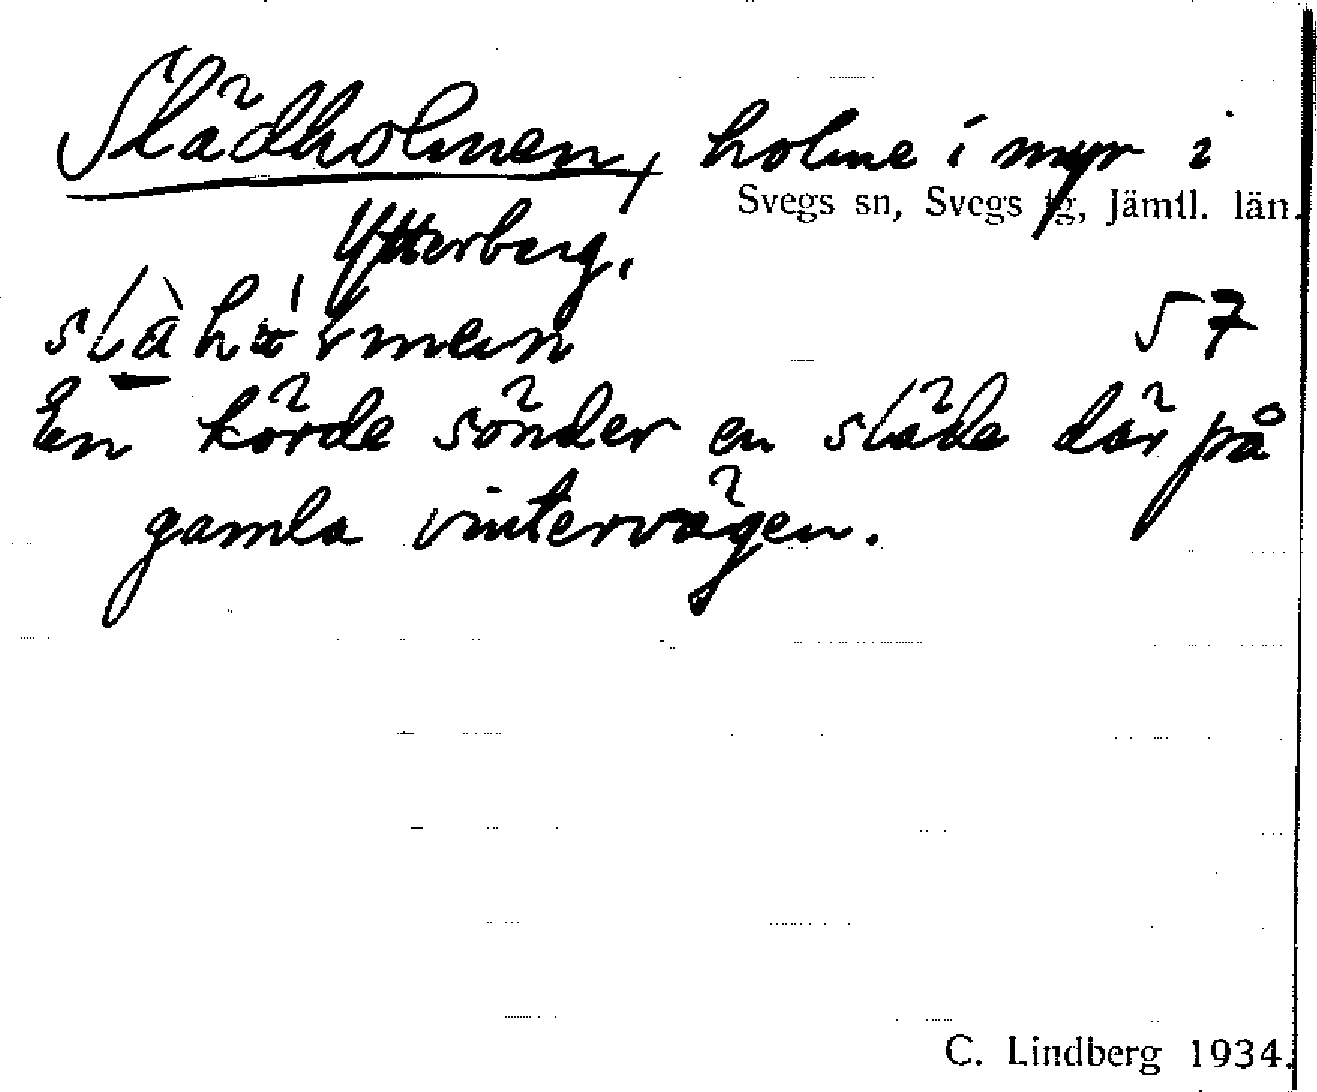 Slädholmen, holme i myr i
Svegs sn, Svegs tg, Jämtl. län.
Ytterberg.
57
En körde sönder en släde där på
gamla vintervägen.
C. Lindberg 1934.